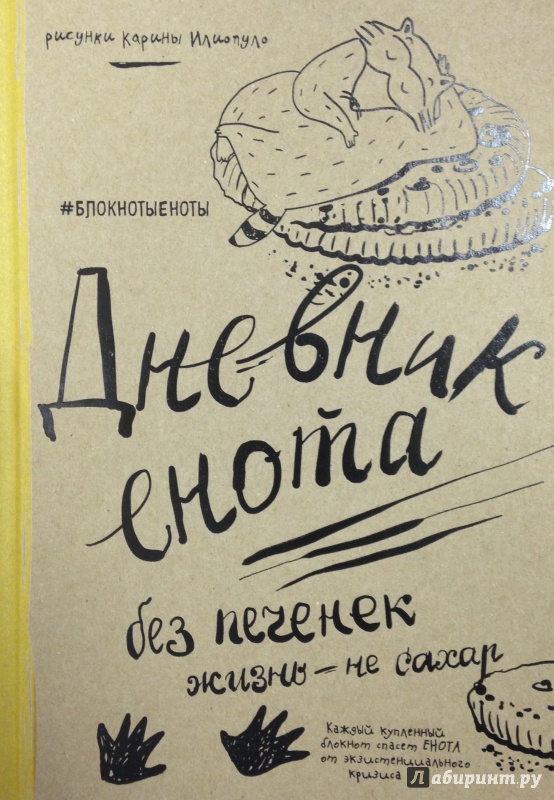 рисунки Карины Илиопуло
#БЛОКНОТЫЕНОТЫ
Дневник
енота
без печенек
жизнь – не сахар
Каждый купленный
блокнот спасет ЕНОТА
от экзистенциального
кризиса
Лабиринт.ру